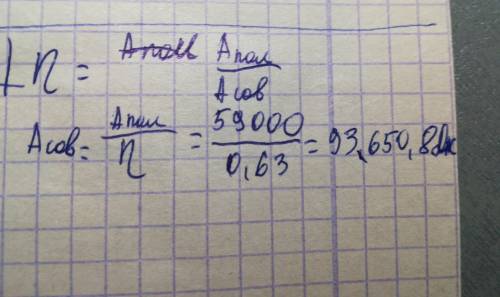 η = Апол / Асов
Асов = Апол / η = 59000 / 0,63 = 93.650,8 Дж